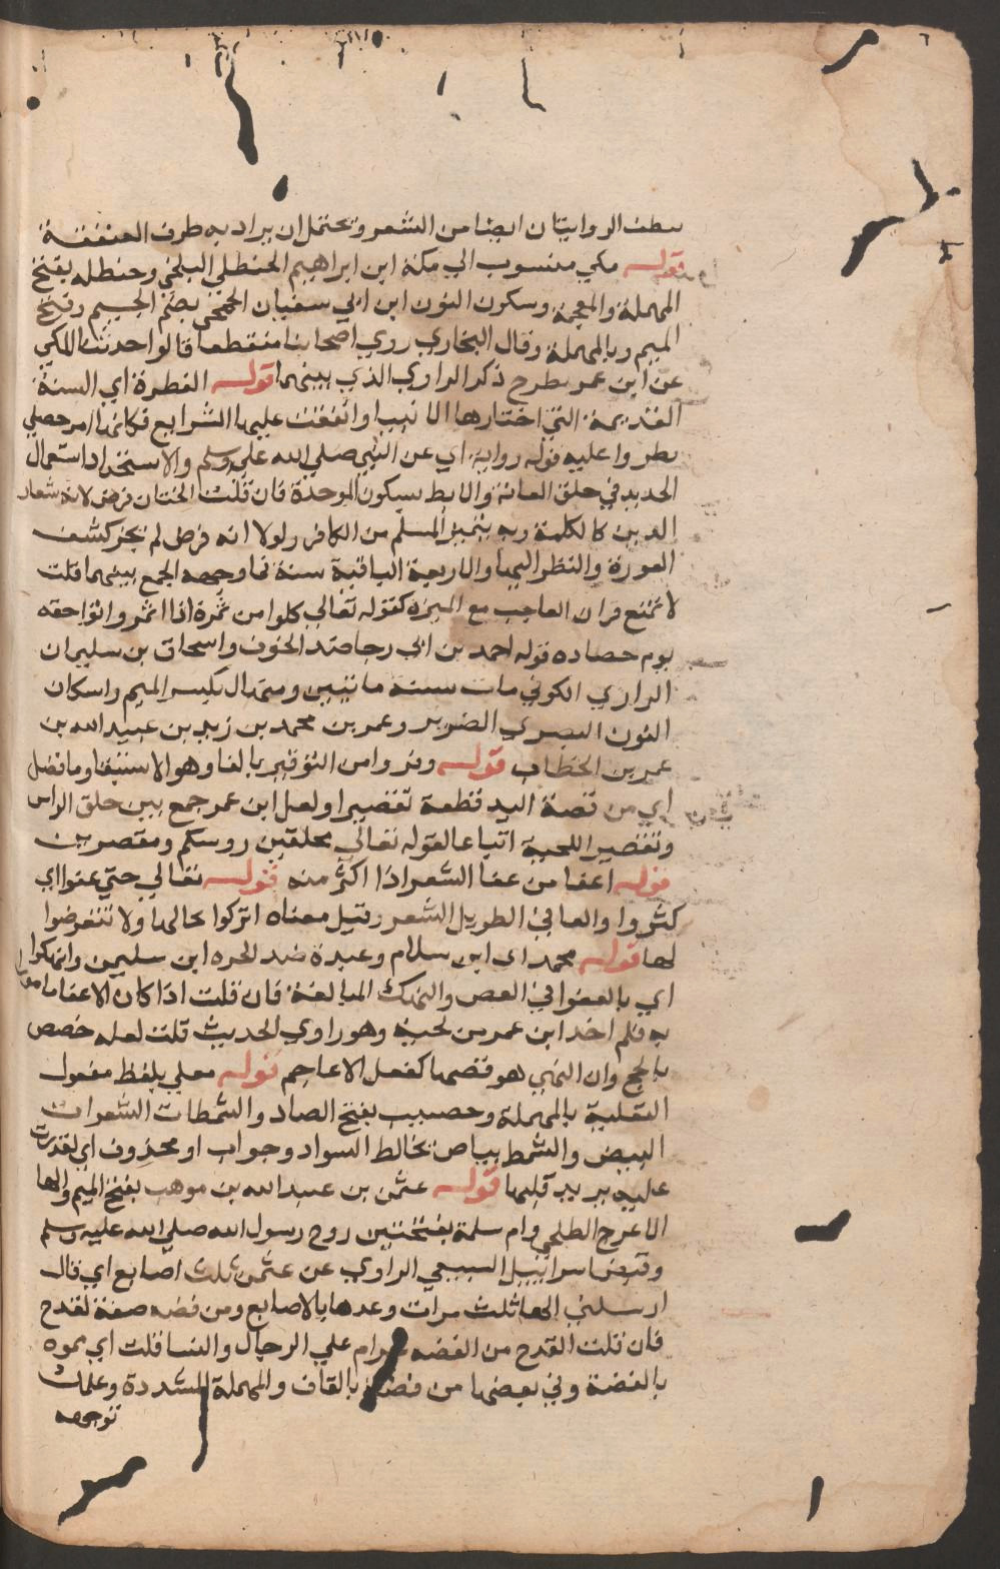 الروايتان ايضا من الشعر ويحتمل ان يراد به طرف العنفقة
قوله مكي منسوب الى مكة ابن ابراهيم الحنظلي البلخي وحنظله بفتح
المهملة والمعجمة وسكون النون ابن ابي سفيان الجمحي بضم الجيم وفتح
الميم وبالمهملة وقال البخاري روي اصحابنا منقطعا قالوا حدثنا المكي
عن ابن عمر بطرح ذكر الراوي الذي بينهما قوله الفطرة اي السنة
القديمة التي اختارها الانبيا واتفقت عليها الشرايع فكانها امر جبلي
فطروا عليه قوله رواية اي عن النبي صلى الله عليه وسلم والاستحداد استعمال
الحديد في حلق العانة والابط بسكون الموحدة فان قلت الختان فرض لانه شعار
الدين كالكلمة وبه يتميز المسلم من الكافر ولولا انه فرض لم يجز كشف
العورة والنظر اليها والاربعة الباقية سنة فما وجه الجمع بينهما قلت
لا تمتنع قران الواجب مع غيره كقوله تعالى كلوا من ثمره اذا اثمر واتوا حقه
يوم حصاده قوله احمد بن ابي رجا ضد الخوف واسحاق بن سليمان
الرازي الكوفي مات سنة مائتين ومنهال بكسر الميم واسكان
النون البصري الضرير وعمر بن محمد بن زيد بن عبد الله بن
عمر بن الخطاب قوله وفروا من التوقير بالفا وهو الاستبقا وما فضل
اي من قبضة اليد قطعة تقصيرا ولعل ابن عمر جمع بين حلق الراس
وتقصير اللحية اتباعا لقوله تعالى محلقين روسكم ومقصرين
قوله اعفا من عفا الشعر اذا اكثر منه قوله تعالى حتي عفوا اي
كثروا والعافي الطويل الشعر وقيل معناه اتركوا بحالها ولا تتعرضوا
لها قوله محمد اي ابن سلام وعبدة ضد الحره ابن سليمن وانهكوا
اي بالغوا في القص والنهك المبالغة فان قلت اذا كان الاعفا مامورا
به فلم اخذ ابن عمر من لحيته وهو راوي الحديث قلت لعله خصص
بالحج وان النهي هو قصها كفعل الاعاجم قوله معلي بلفظ مفعول
التعلية بالمهملة وخضيب بفتح الضاد والشمطات الشعرات
البيض والشمط بياض يخالط السواد وجواب لو محذوف اي لقدرت
عليه يريد قلتها قوله عثمن بن عبد الله بن موهب بفتح الميم والها
الاعرج الطلحي وام سلمة بفتحتين زوج رسول الله صلى الله عليه وسلم
وقبض اسرائيل السبيعي الراوي عن عثمن ثلث اصابع اي قال
ارسلني اليها ثلث مرات وعدها بالاصابع ومن فضه صفة لقدح
فان قلت القدح من الفضه حرام علي الرجال والنسا قلت اي مموه
بالفضة وفي بعضها من قصة بالقاف والمهملة المشددة وعليك
توجيهه